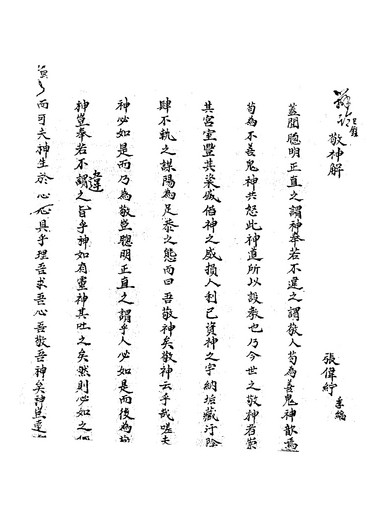 敬神解
張偉紳
蓋聞聰明正直之謂神奉若不違之謂敬人苟為善鬼神歆焉
苟為不善鬼神共怒此神道所以設教也乃今世之敬神者崇
其宮室豐其粢盛借神之威損人利己資神之宇納垢藏汙陰
肆不軌之謀陽為足恭之態而曰吾敬神矣敬神云乎哉嗟夫
神必如是而乃為敬豈聰明正直之謂乎人必如是而後為
神豈奉若不違之旨乎神如有靈神其吐之矣然則必如之何
而可夫神生於心心具乎理吾求吾心吾敬吾神矣神豈遠